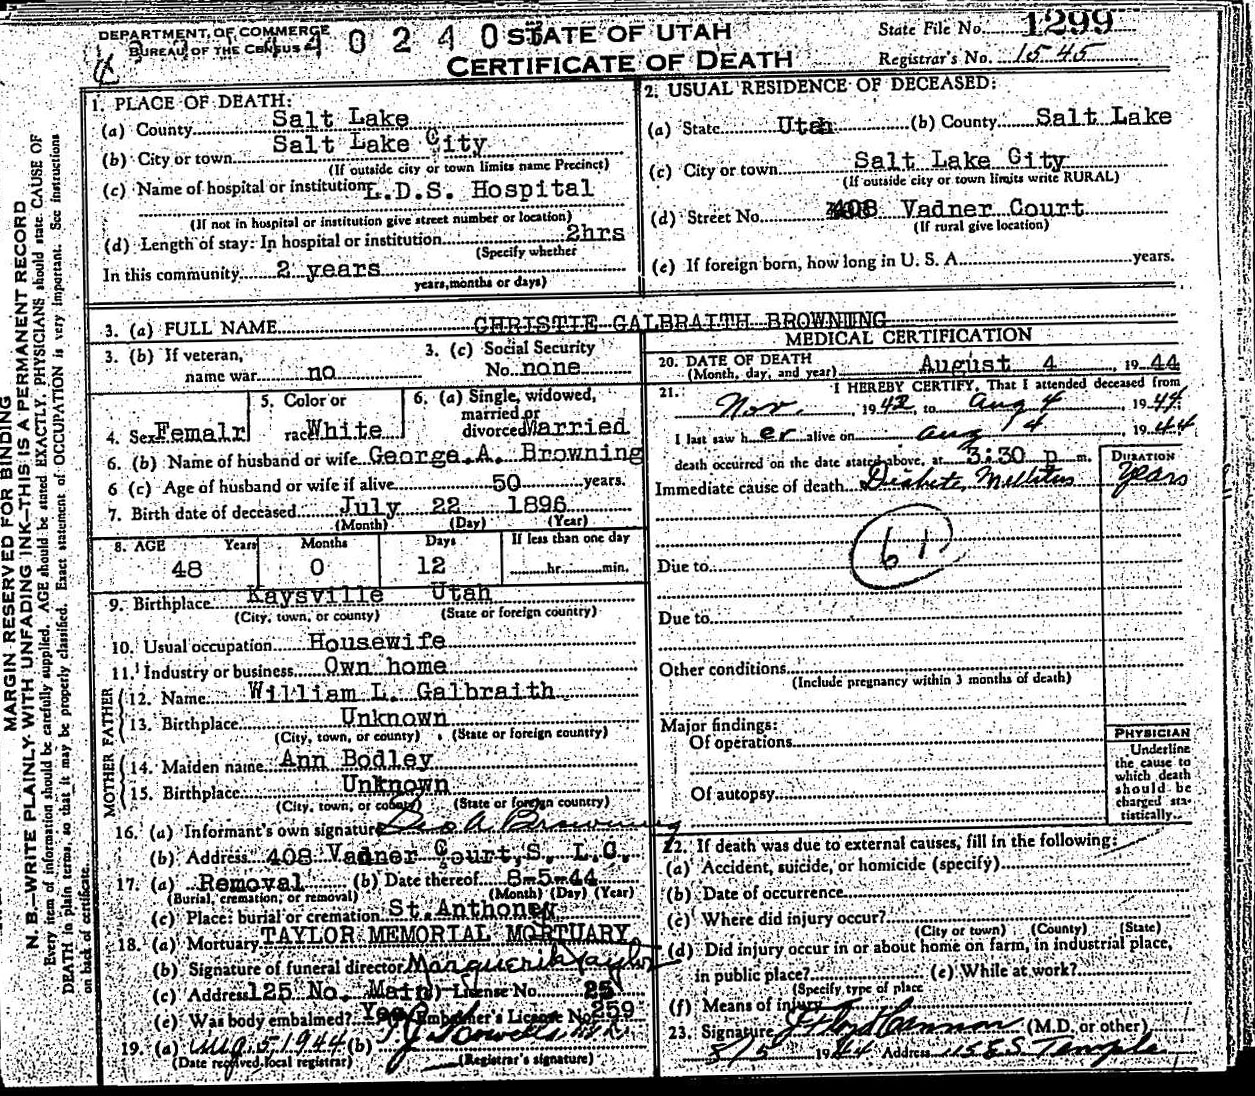 DEPARTMENT OF COMMERCE
BUREAU OF THE CENSUS
4 0 2 4 0
STATE OF UTAH
CERTIFICATE OF DEATH
State File No. 1299
Registrar's No. 1545
MARGIN RESERVED FOR BINDING
N. B.—WRITE PLAINLY WITH UNFADING INK—THIS IS A PERMANENT RECORD
Every item of information should be carefully supplied. AGE should be stated EXACTLY. PHYSICIANS should state CAUSE OF
DEATH in plain terms, so that it may be properly classified. Exact statement of OCCUPATION is very important. See instructions
on back of certificate.
1. PLACE OF DEATH:
(a) County Salt Lake
(b) City or town Salt Lake City
(If outside city or town limits name Precinct)
(c) Name of hospital or institution L.D.S. Hospital
(If not in hospital or institution give street number or location)
(d) Length of stay: In hospital or institution 2hrs
(Specify whether
In this community 2 years
years, months or days)
2. USUAL RESIDENCE OF DECEASED:
(a) State Utah (b) County Salt Lake
(c) City or town Salt Lake City
(If outside city or town limits write RURAL)
(d) Street No. 408 Vadner Court
(If rural give location)
(e) If foreign born, how long in U. S. A. years.
3. (a) FULL NAME CHRISTIE GALBRAITH BROWNING
3. (b) If veteran, name war no
3. (c) Social Security No. none
4. Sex Femalr
5. Color or race White
6. (a) Single, widowed, married or divorced Married
6. (b) Name of husband or wife George A. Browning
6 (c) Age of husband or wife if alive 50 years.
7. Birth date of deceased July 22 1896
(Month) (Day) (Year)
8. AGE Years Months Days If less than one day
48 0 12 hr. min.
9. Birthplace Kaysville Utah
(City, town, or county) (State or foreign country)
10. Usual occupation Housewife
11. Industry or business Own home
FATHER
12. Name William L. Galbraith
13. Birthplace Unknown
(City, town, or county) (State or foreign country)
MOTHER
14. Maiden name Ann Bodley
15. Birthplace Unknown
(City, town, or county) (State or foreign country)
16. (a) Informant's own signature Geo A. Browning
(b) Address 408 Vadner Court, S. L.C.
17. (a) Removal (b) Date thereof 8-5-44
(Burial, cremation, or removal) (Month) (Day) (Year)
(c) Place: burial or cremation St. Anthony
18. (a) Mortuary TAYLOR MEMORIAL MORTUARY
(b) Signature of funeral director Marguerite Taylor
(c) Address 125 No. Main License No. 25
(e) Was body embalmed? Yes Embalmer's License No. 259
19. (a) Aug 5 1944 (b)
(Date received local registrar) (Registrar's signature)
MEDICAL CERTIFICATION
20. DATE OF DEATH August 4 1944
(Month, day, and year)
21. I HEREBY CERTIFY, That I attended deceased from
Nov. , 1942, to Aug 4 1944
I last saw her alive on Aug 4 1944
death occurred on the date stated above, at 3:30 p m.
DURATION
Immediate cause of death Diabetes Mellitus Years
61
Due to
Due to
Other conditions
(Include pregnancy within 3 months of death)
Major findings:
Of operations
Of autopsy
PHYSICIAN
Underline
the cause to
which death
should be
charged sta-
tistically.
22. If death was due to external causes, fill in the following:
(a) Accident, suicide, or homicide (specify)
(b) Date of occurrence
(c) Where did injury occur?
(City or town) (County) (State)
(d) Did injury occur in or about home on farm, in industrial place,
in public place? (e) While at work?
(Specify type of place
(f) Means of injury
23. Signature J Floyd Cannon (M.D. or other)
8/5 1944 Address 115 E S. Temple